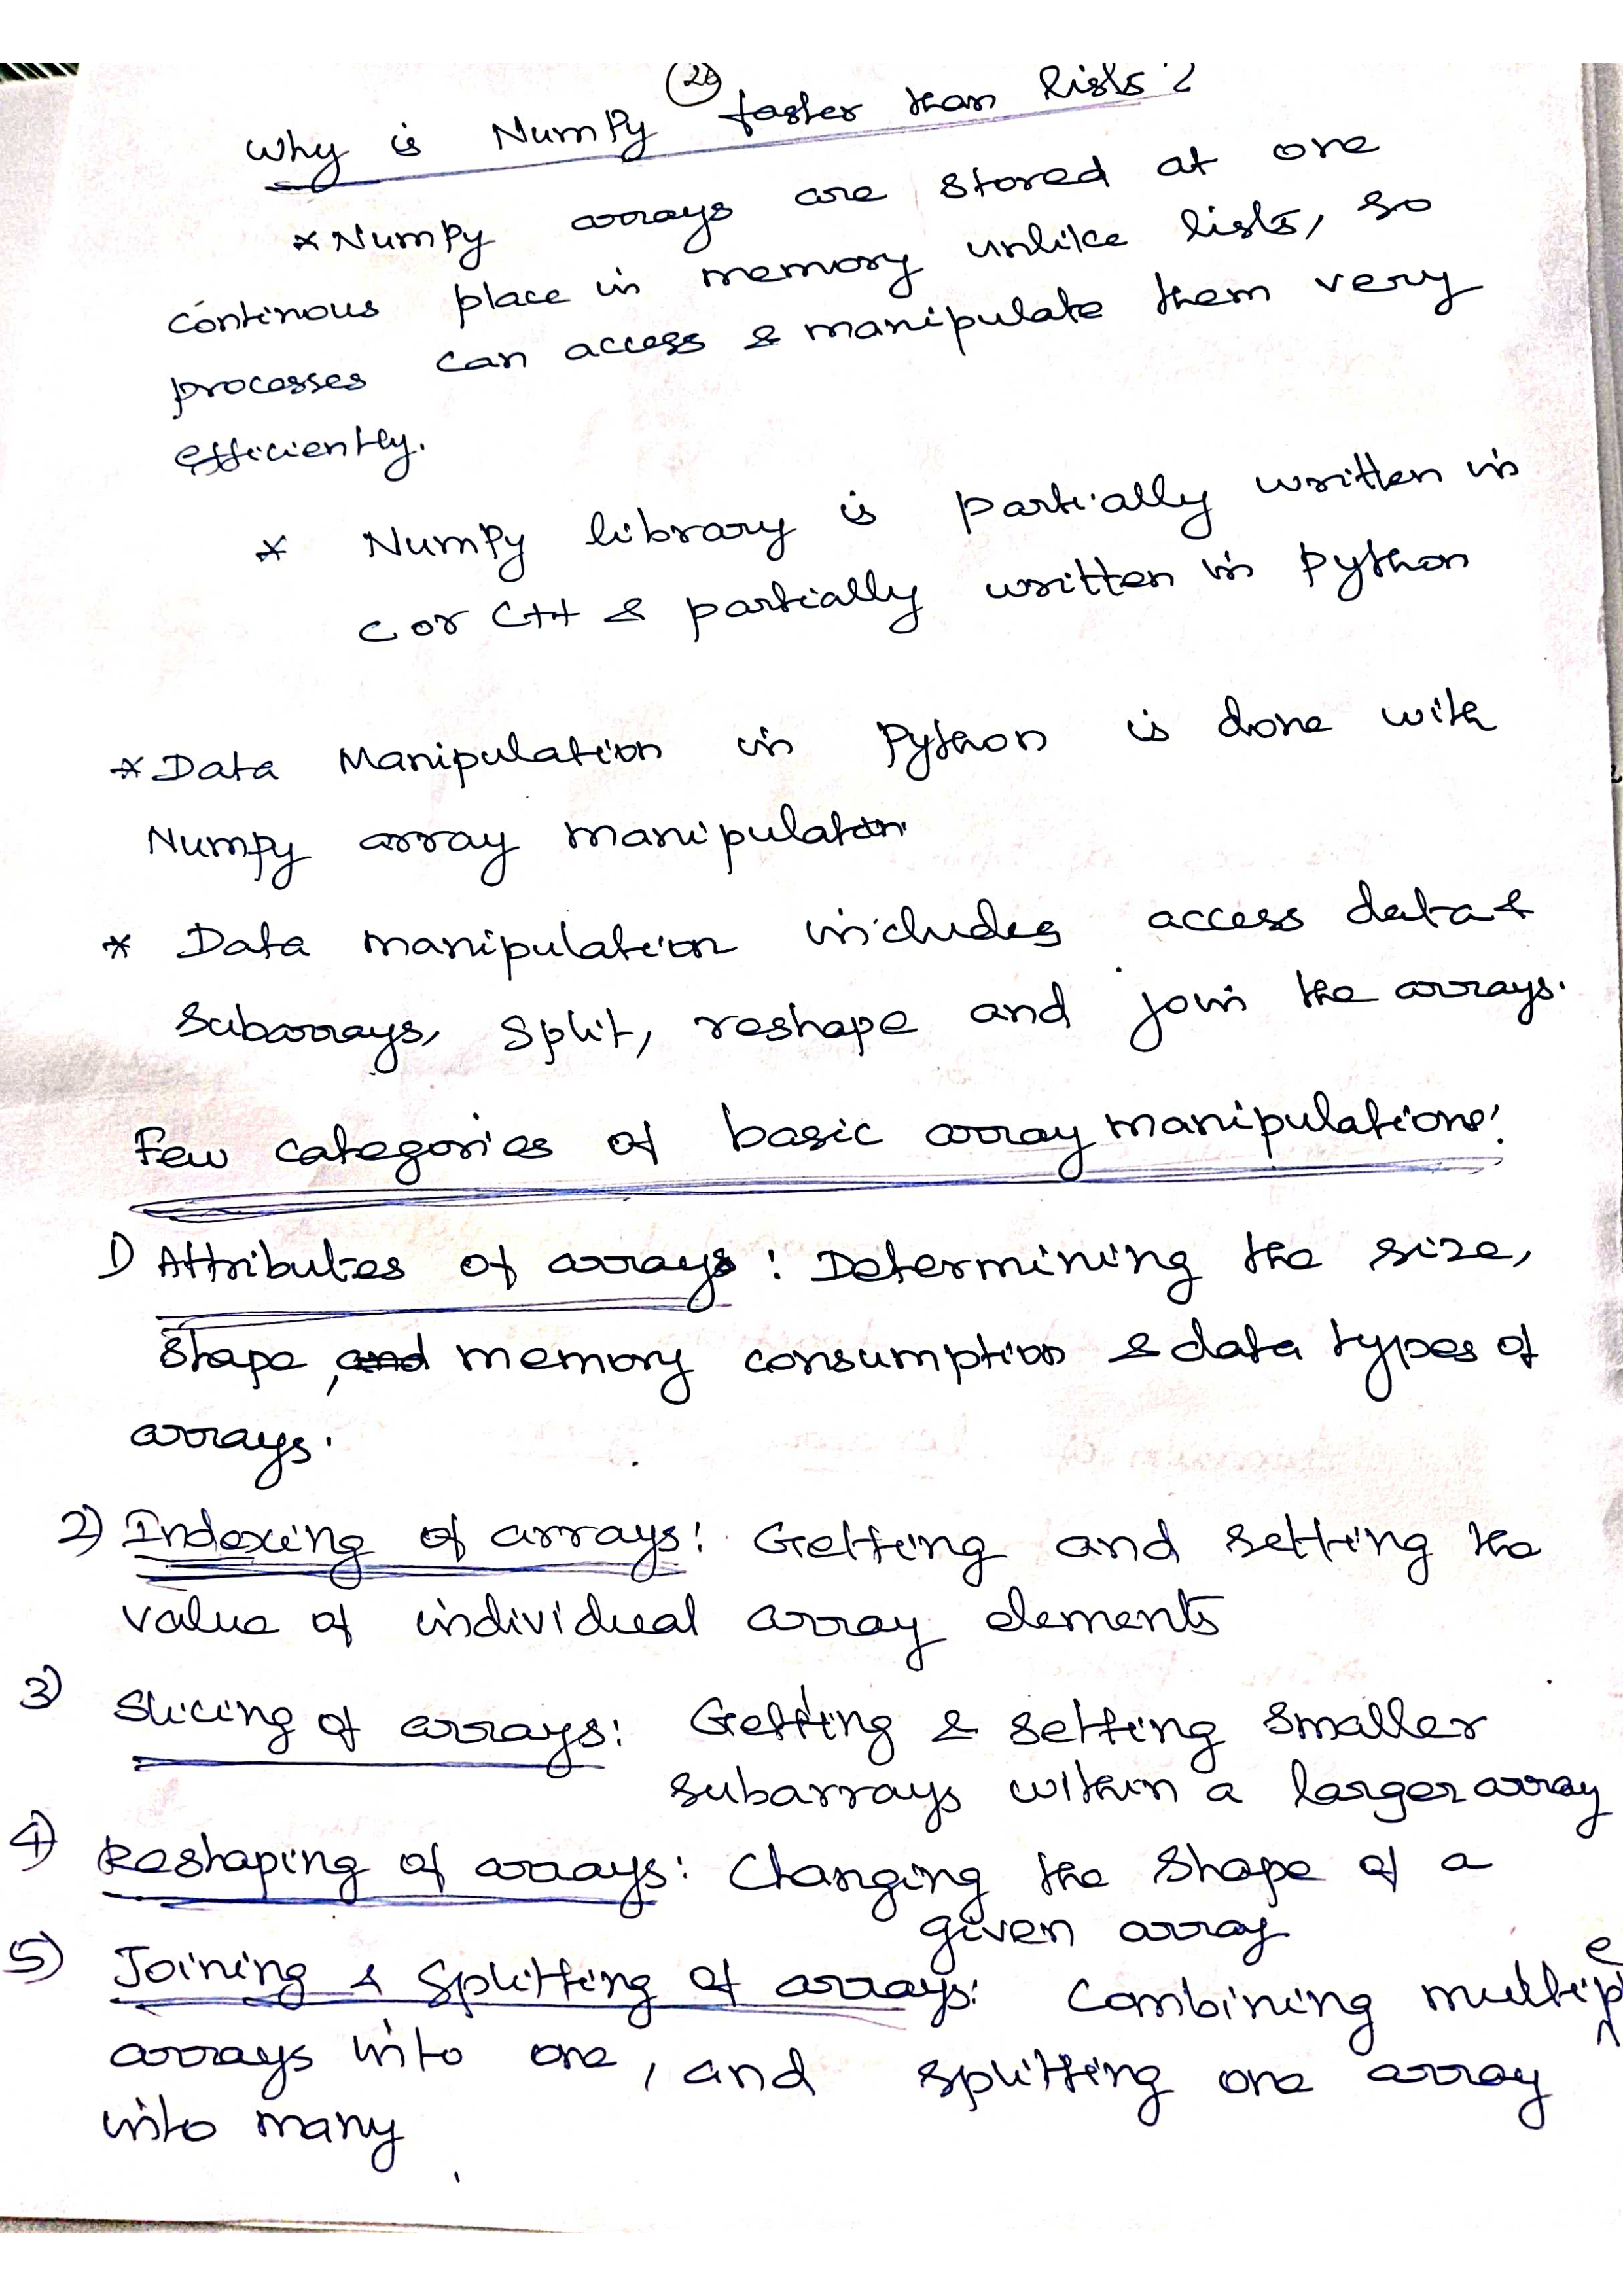 Why is NumPy faster than lists?
* NumPy arrays are stored at one
continous place in memory unlike lists, so
processes can access & manipulate them very
efficiently.
* NumPy library is partially written in
C or C++ & partially written in python
* Data Manipulation in Python is done with
Numpy array manipulation
* Data manipulation includes access data &
Subarrays, Split, reshape and join the arrays.
Few categories of basic array manipulations:
1) Attributes of arrays: Determining the size,
Shape, and memory consumption & data types of
arrays.
2) Indexing of arrays: Getting and setting the
value of individual array elements
3) Slicing of arrays: Getting & setting smaller
subarrays within a larger array
4) Reshaping of arrays: Changing the Shape of a
given array
5) Joining & Splitting of arrays: Combining multiple
arrays into one, and splitting one array
into many